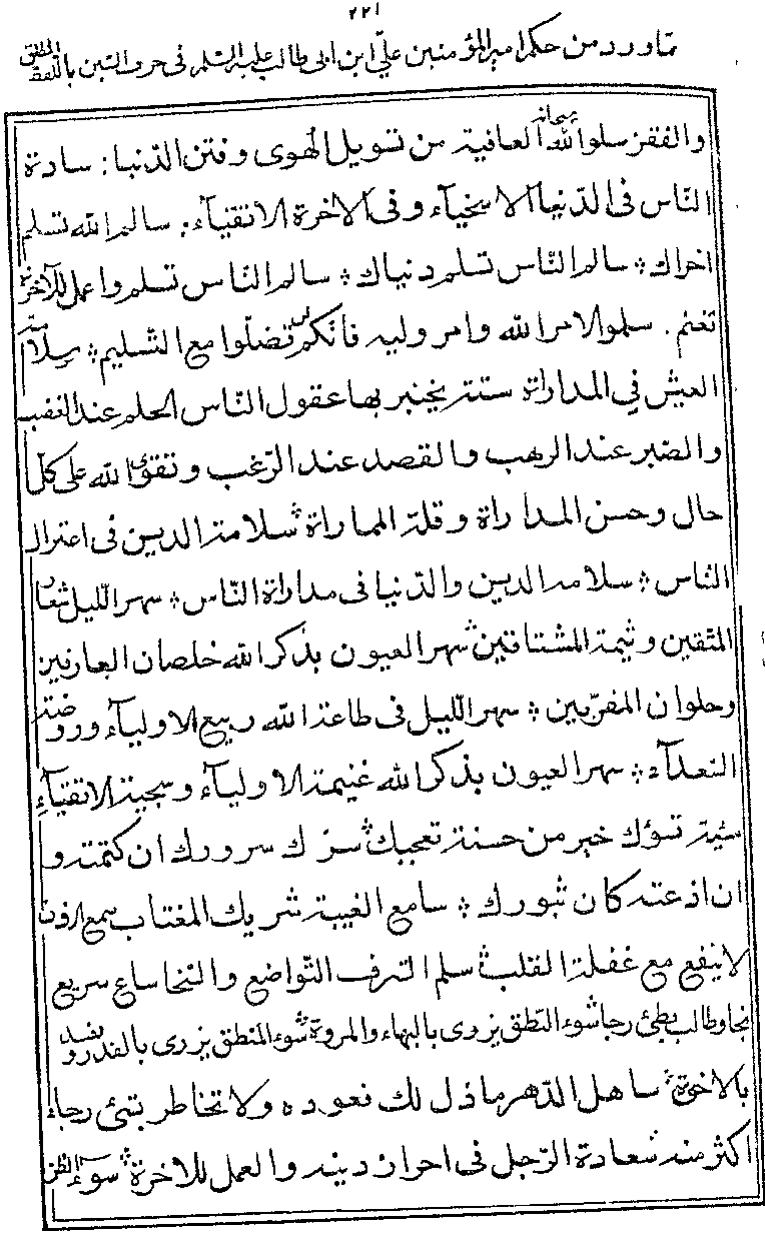 ٢٢١
مما ورد من حكم امير المؤمنين علي ابن ابي طالب عليه السلم في حرف السين باللفظ المطلق
والفقر سلوا الله سبحانه العافية من تسويل الهوى وفتن الدنيا : سادة
النّاس في الدّنيا الاسخيآء وفي الاخرة الاتقيآء : سالم الله تسلم
اخراك ؛ سالم النّاس تسلم دنياك ؛ سالم النّاس تسلم واعمل للآخرة
تغنم . سلموا لامر الله وامر وليه فانكم لن تضلّوا مع التّسليم ؛ سلامة
العيش في المداراة ستة يختبر بها عقول النّاس الحلم عند الغضب
والصّبر عند الرهب والقصد عند الرّغب وتقوى الله على كلّ
حال وحسن المداراة وقلة المماراة ؛ سلامة الدين في اعتزال
الناس ؛ سلامة الدين والدّنيا في مداراة النّاس ؛ سهر اللّيل شعار
المتّقين وشيمة المشتاقين ؛ سهر العيون بذكر الله خلصان العارفين
وحلوان المقرّبين ؛ سهر اللّيل في طاعة الله ربيع الاوليآء وروضة
السّعدآء ؛ سهر العيون بذكر الله غنيمة الاوليآء وسجية الاتقيآء
سيّئة تسؤك خير من حسنة تعجبك ؛ سرّك سرورك ان كتمته و
ان اذعته كان ثبورك ؛ سامع الغيبة شريك المغتاب سمع الاذن
لا ينفع مع غفلة القلب ؛ سلم الشرف التّواضع والسّخا ساع سريع
نجا وطالب بطئ رجا سوء النّطق يزرى بالبهاء والمروة ؛ سوء المنطق يزرى بالقدر ويفسد
بالاخوة ؛ ساهل الدّهر ما ذل لك قعوده ولا تخاطر بشئ رجاء
اكثر منه سعادة الرّجل في احراز دينه والعمل للاخرة ؛ سوء الظن